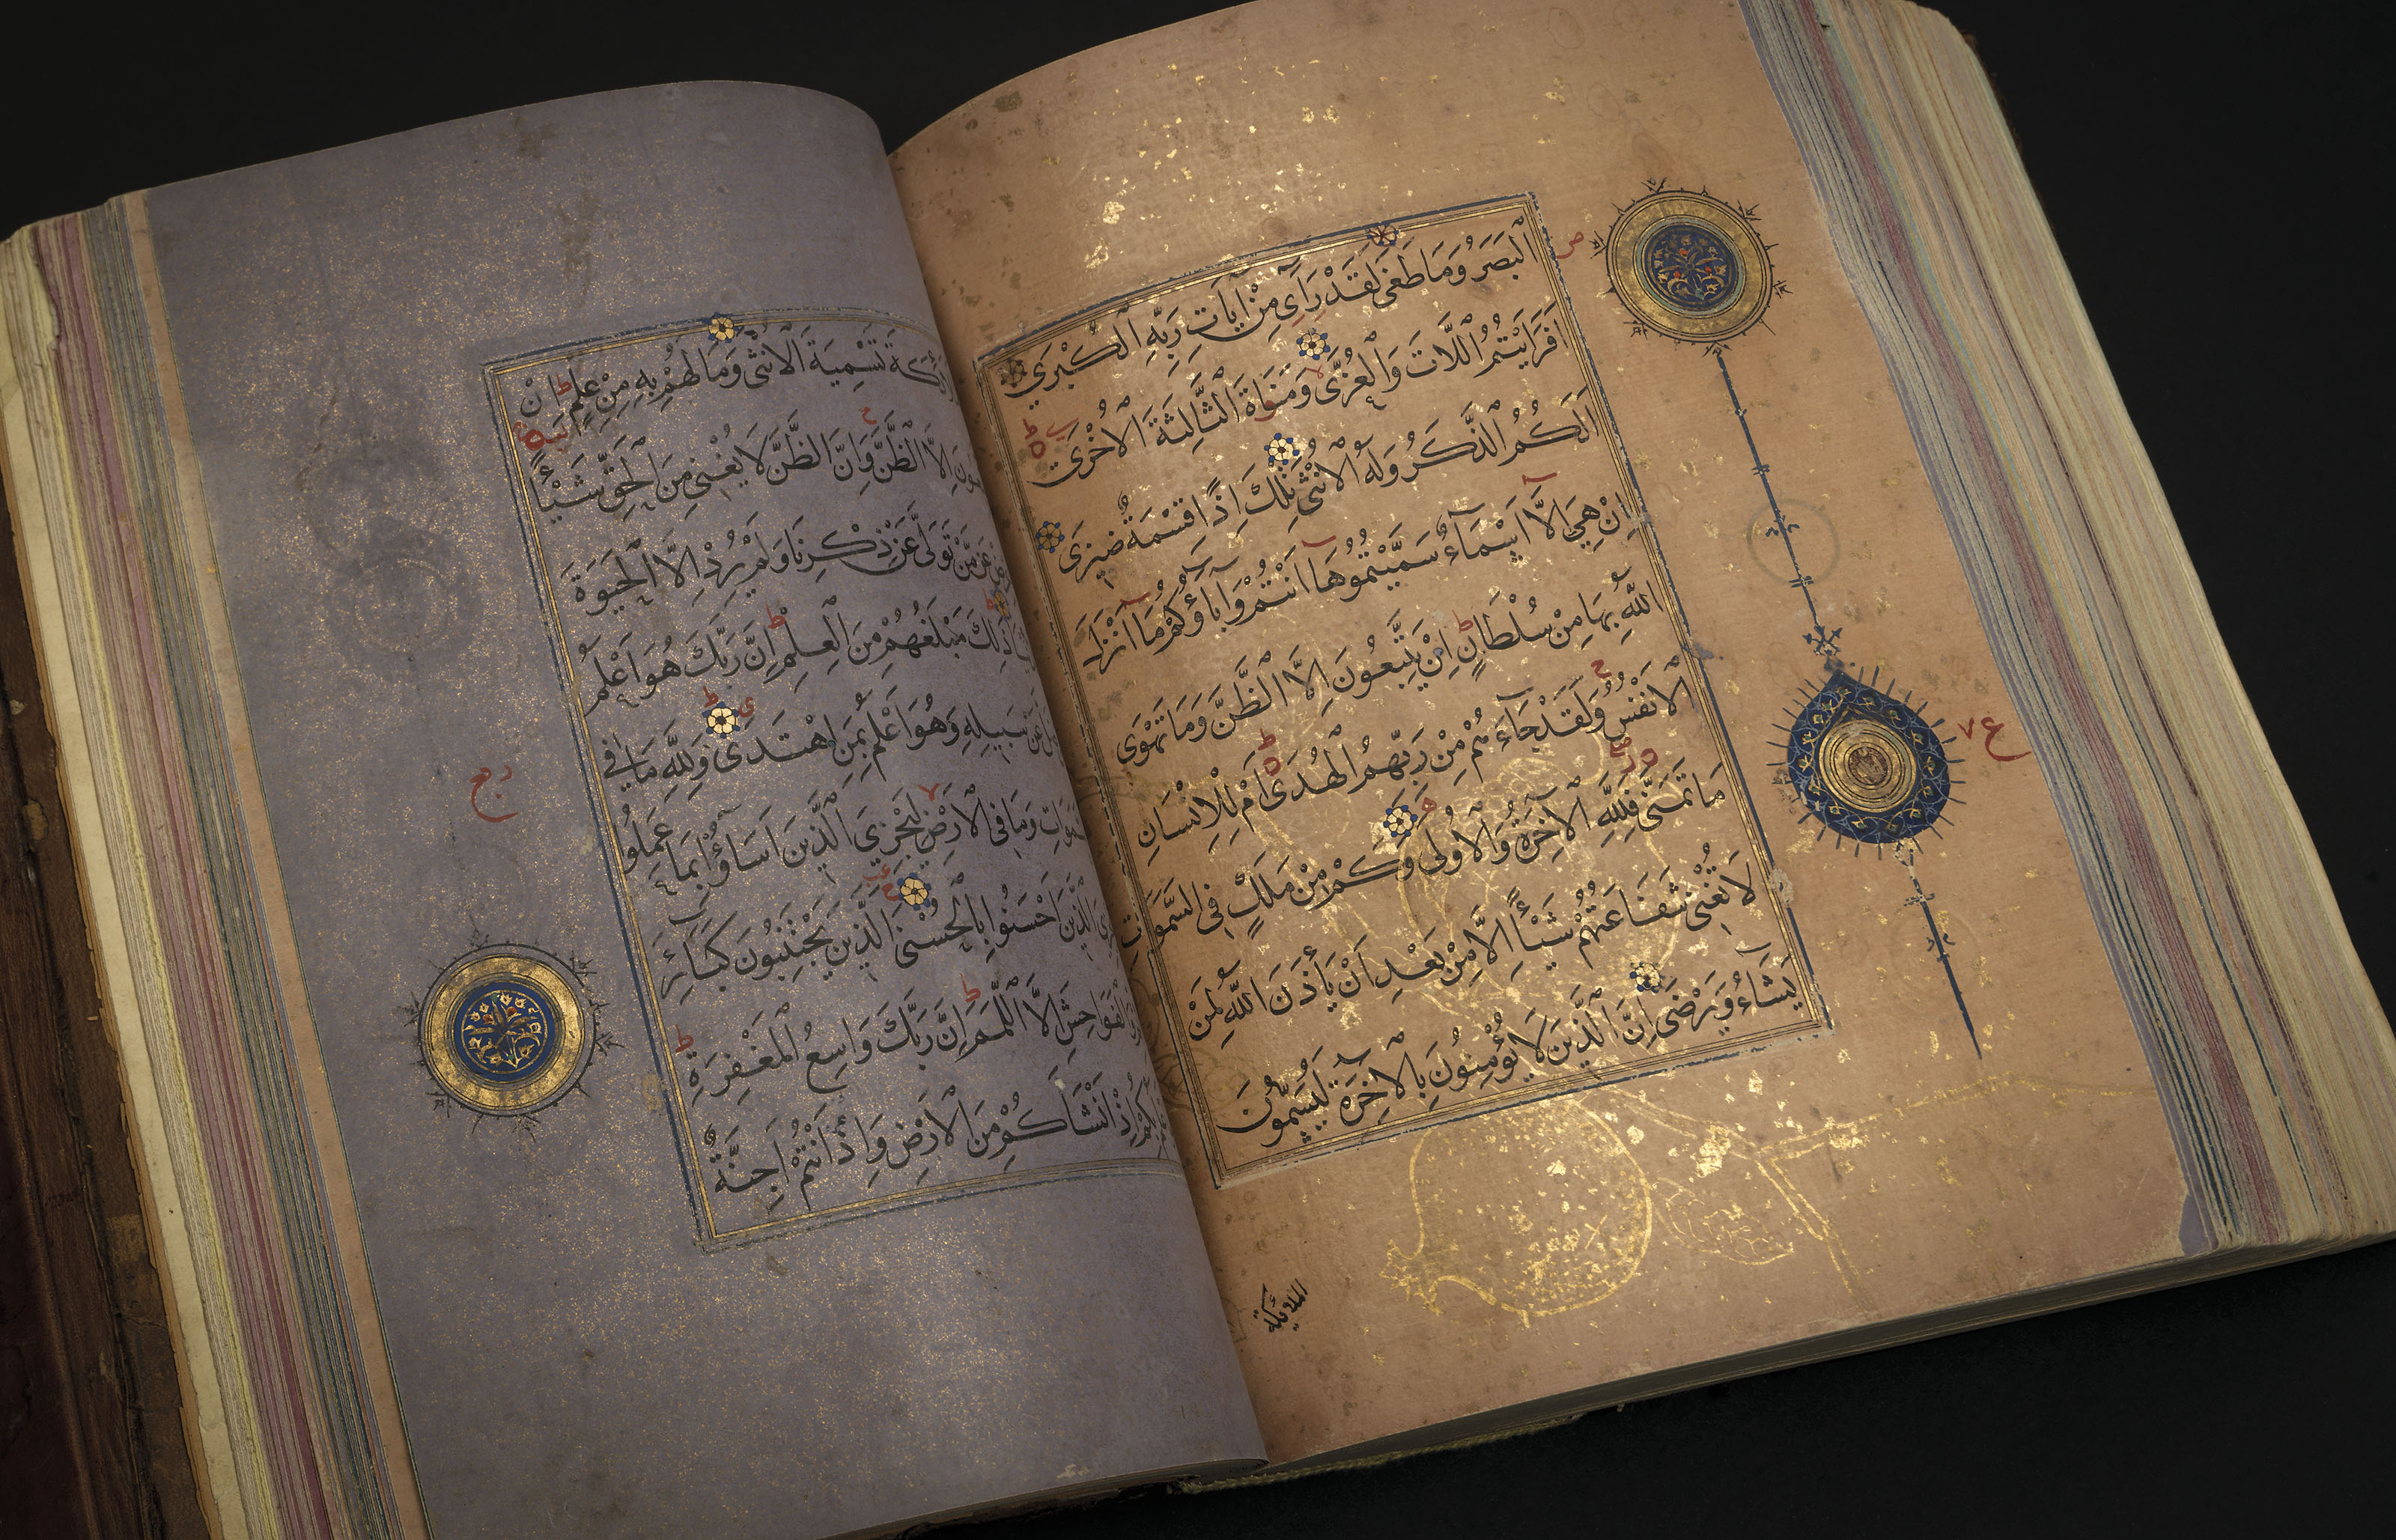 الْبَصَرُ وَمَا طَغٰى لَقَدْ رَاٰى مِنْ اٰيَاتِ رَبِّهِ الْكُبْرٰى
اَفَرَاَيْتُمُ اللَّاتَ وَالْعُزّٰى وَمَنَوٰةَ الثَّالِثَةَ الْاُخْرٰى
اَلَكُمُ الذَّكَرُ وَلَهُ الْاُنْثٰى تِلْكَ اِذًا قِسْمَةٌ ضِيزٰى
اِنْ هِيَ اِلَّا اَسْمَاءٌ سَمَّيْتُمُوهَا اَنْتُمْ وَاٰبَاؤُكُمْ مَا اَنْزَلَ
اللّٰهُ بِهَا مِنْ سُلْطَانٍ اِنْ يَتَّبِعُونَ اِلَّا الظَّنَّ وَمَا تَهْوَى
الْاَنْفُسُ وَلَقَدْ جَاءَهُمْ مِنْ رَبِّهِمُ الْهُدٰى اَمْ لِلْاِنْسَانِ
مَا تَمَنّٰى فَلِلّٰهِ الْاٰخِرَةُ وَالْاُولٰى وَكَمْ مِنْ مَلَكٍ فِي السَّمٰوَاتِ
لَا تُغْنِي شَفَاعَتُهُمْ شَيْئًا اِلَّا مِنْ بَعْدِ اَنْ يَأْذَنَ اللّٰهُ لِمَنْ
يَشَاءُ وَيَرْضٰى اِنَّ الَّذِينَ لَا يُؤْمِنُونَ بِالْاٰخِرَةِ لَيُسَمُّونَ
الملائكة
تَسْمِيَةَ الْاُنْثٰى وَمَا لَهُمْ بِهِ مِنْ عِلْمٍ اِنْ
اِلَّا الظَّنَّ وَاِنَّ الظَّنَّ لَا يُغْنِي مِنَ الْحَقِّ شَيْئًا
عَنْ مَنْ تَوَلّٰى عَنْ ذِكْرِنَا وَلَمْ يُرِدْ اِلَّا الْحَيٰوةَ
ذٰلِكَ مَبْلَغُهُمْ مِنَ الْعِلْمِ اِنَّ رَبَّكَ هُوَ اَعْلَمُ
عَنْ سَبِيلِهِ وَهُوَ اَعْلَمُ بِمَنِ اهْتَدٰى وَلِلّٰهِ مَا فِي
وَمَا فِي الْاَرْضِ لِيَجْزِيَ الَّذِينَ اَسَاؤُا بِمَا عَمِلُوا
الَّذِينَ اَحْسَنُوا بِالْحُسْنَى الَّذِينَ يَجْتَنِبُونَ كَبَائِرَ
اِلَّا اللَّمَمَ اِنَّ رَبَّكَ وَاسِعُ الْمَغْفِرَةِ
اِذْ اَنْشَاَكُمْ مِنَ الْاَرْضِ وَاِذْ اَنْتُمْ اَجِنَّةٌ